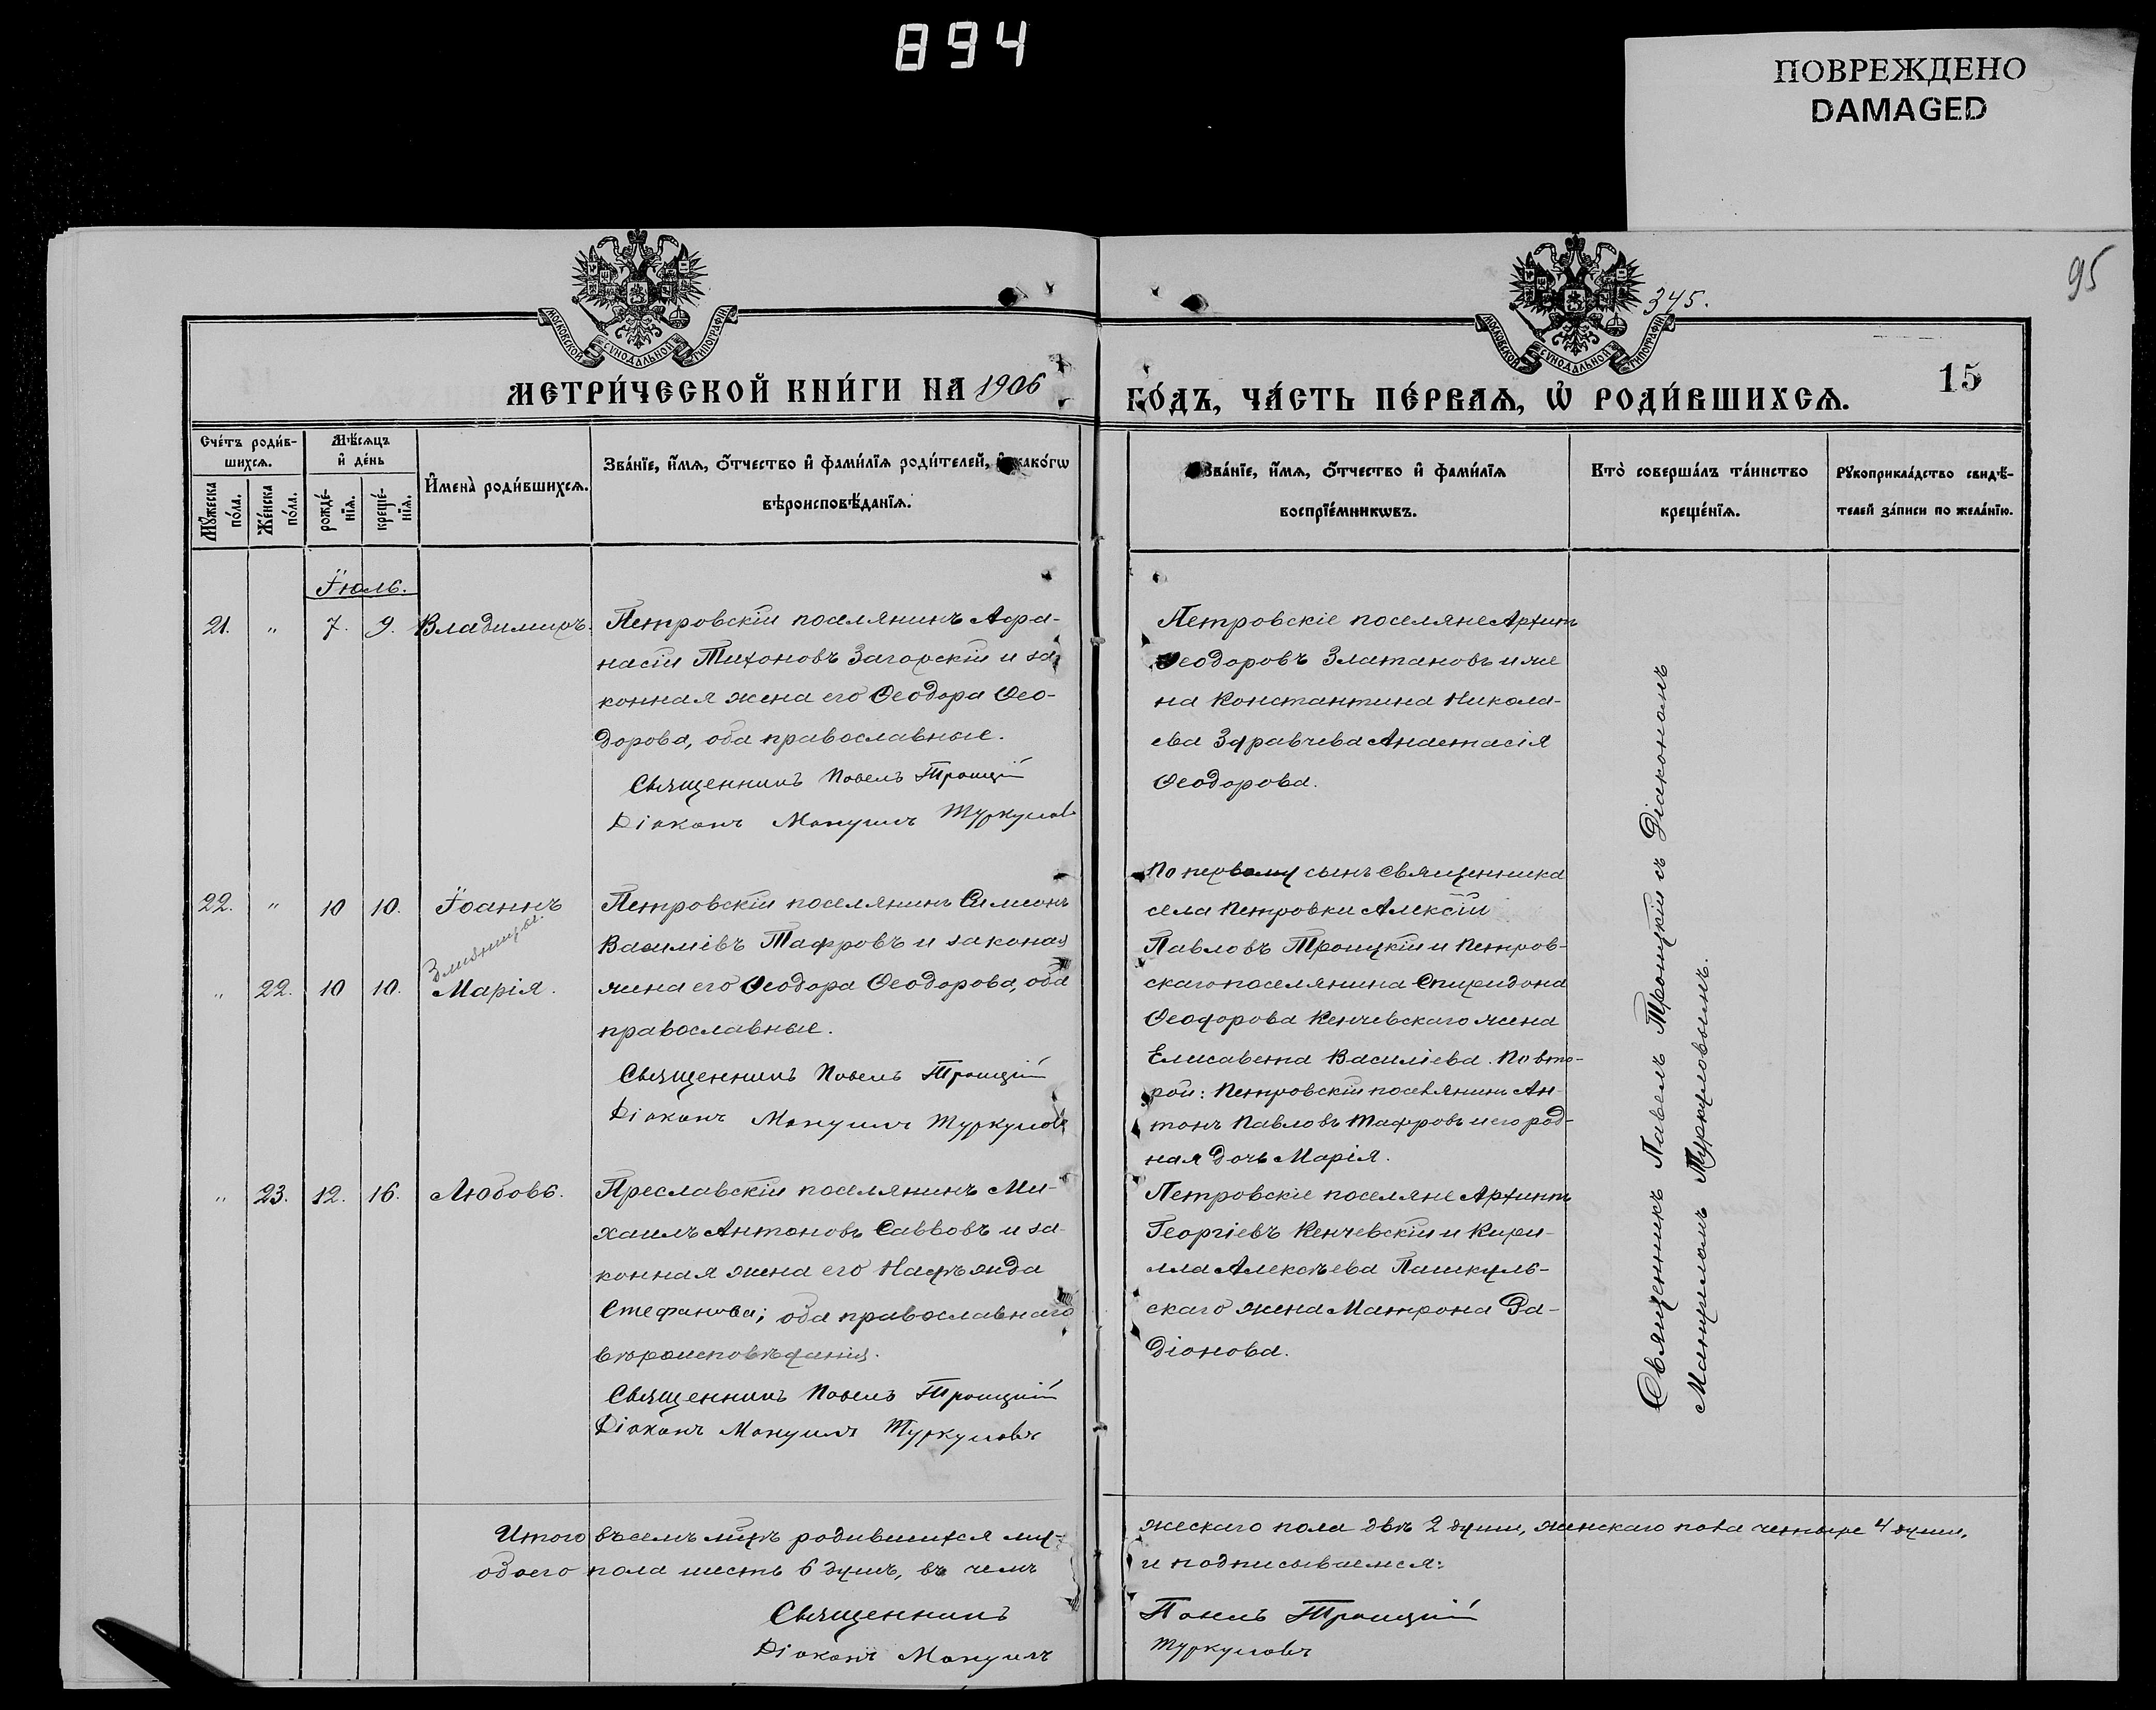 894
ПОВРЕЖДЕНО
DAMAGED
95
345.
МОСКОВСКОЙ СУНОДАЛЬНОЙ ТИПОГРАФІИ
МОСКОВСКОЙ СУНОДАЛЬНОЙ ТИПОГРАФІИ
15
МЕТРИ́ЧЕСКОЙ КНИ́ГИ НА 1906
ГО́ДЪ, ЧА́СТЬ ПЕ́РВАѦ, Ѡ҆ РОДИ́ВШИХСѦ.
Сче́тъ роди́в-
шихсѧ.
Мꙋ́жеска по́ла.
Же́нска по́ла.
Мѣ́сѧцъ
и҆ де́нь
рожде́-
нїѧ.
креще́-
нїѧ.
И҆мена̀ роди́вшихсѧ.
Зва́нїе, и҆́мѧ, ѻ҆́тчество и҆ фами́лїѧ роди́телей, и҆ како́гѡ
вѣроисповѣ́данїѧ.
Зва́нїе, и҆́мѧ, ѻ҆́тчество и҆ фами́лїѧ
воспрїе́мникѡвъ.
Кто̀ соверша́лъ та́инство
креще́нїѧ.
Рꙋкоприкла́дство свидѣ́-
телей за́писи по жела́нїю.
Іюль.
21. " 7. 9. Владимиръ.
Петровскій поселянинъ Афа-
насій Тихоновъ Загорскій и за
конная жена его Ѳеодора Ѳео-
дорова, оба православные.
Священникъ Павелъ Троицкій
Діаконъ Мануилъ Туркуловъ
Петровскіе поселяне Архипъ
Ѳеодоровъ Златановъ и же
на Константина Никола-
ева Здравчева Анастасія
Ѳеодорова.
22. " 10 10. Іоаннъ
Близнецы.
" 22. 10 10. Марія.
Петровскій поселянинъ Симеонъ
Василіевъ Тафровъ и законая
жена его Ѳеодора Ѳеодорова, оба
православные.
Священникъ Павелъ Троицкій
Діаконъ Мануилъ Туркуловъ
По первому сынъ священника
села Петровки Алексій
Павловъ Троицкій и Петров-
скаго поселянина Спиридона
Ѳеодорова Кенчевскаго жена
Елисавета Василіева. По вто-
рой: Петровскій поселянинъ Ан-
тонъ Павловъ Тафровъ и его род-
ная дочь Марія.
" 23. 12. 16. Любовь.
Преславскій поселянинъ Ми-
хаилъ Антоновъ Саввовъ и за-
конная жена его
Стефанова; оба православнаго
вѣроисповѣданія.
Священникъ Павелъ Троицкій
Діаконъ Мануилъ Туркуловъ
Петровскіе поселяне Архипъ
Георгіевъ Кенчевскій и Кири-
лла Алексѣева Пашкуль-
скаго жена Матрона Ра-
діонова.
Священникъ Павелъ Троицкій съ Діакономъ
Мануиломъ Туркуловымъ.
Итого въ семъ мѣсяцѣ родившихся му-
жескаго пола двѣ 2 души, женскаго пола четыре 4 души,
обоего пола шесть 6 душъ, въ чемъ
и подписываемся:
Священникъ Павелъ Троицкій
Діаконъ Мануилъ Туркуловъ